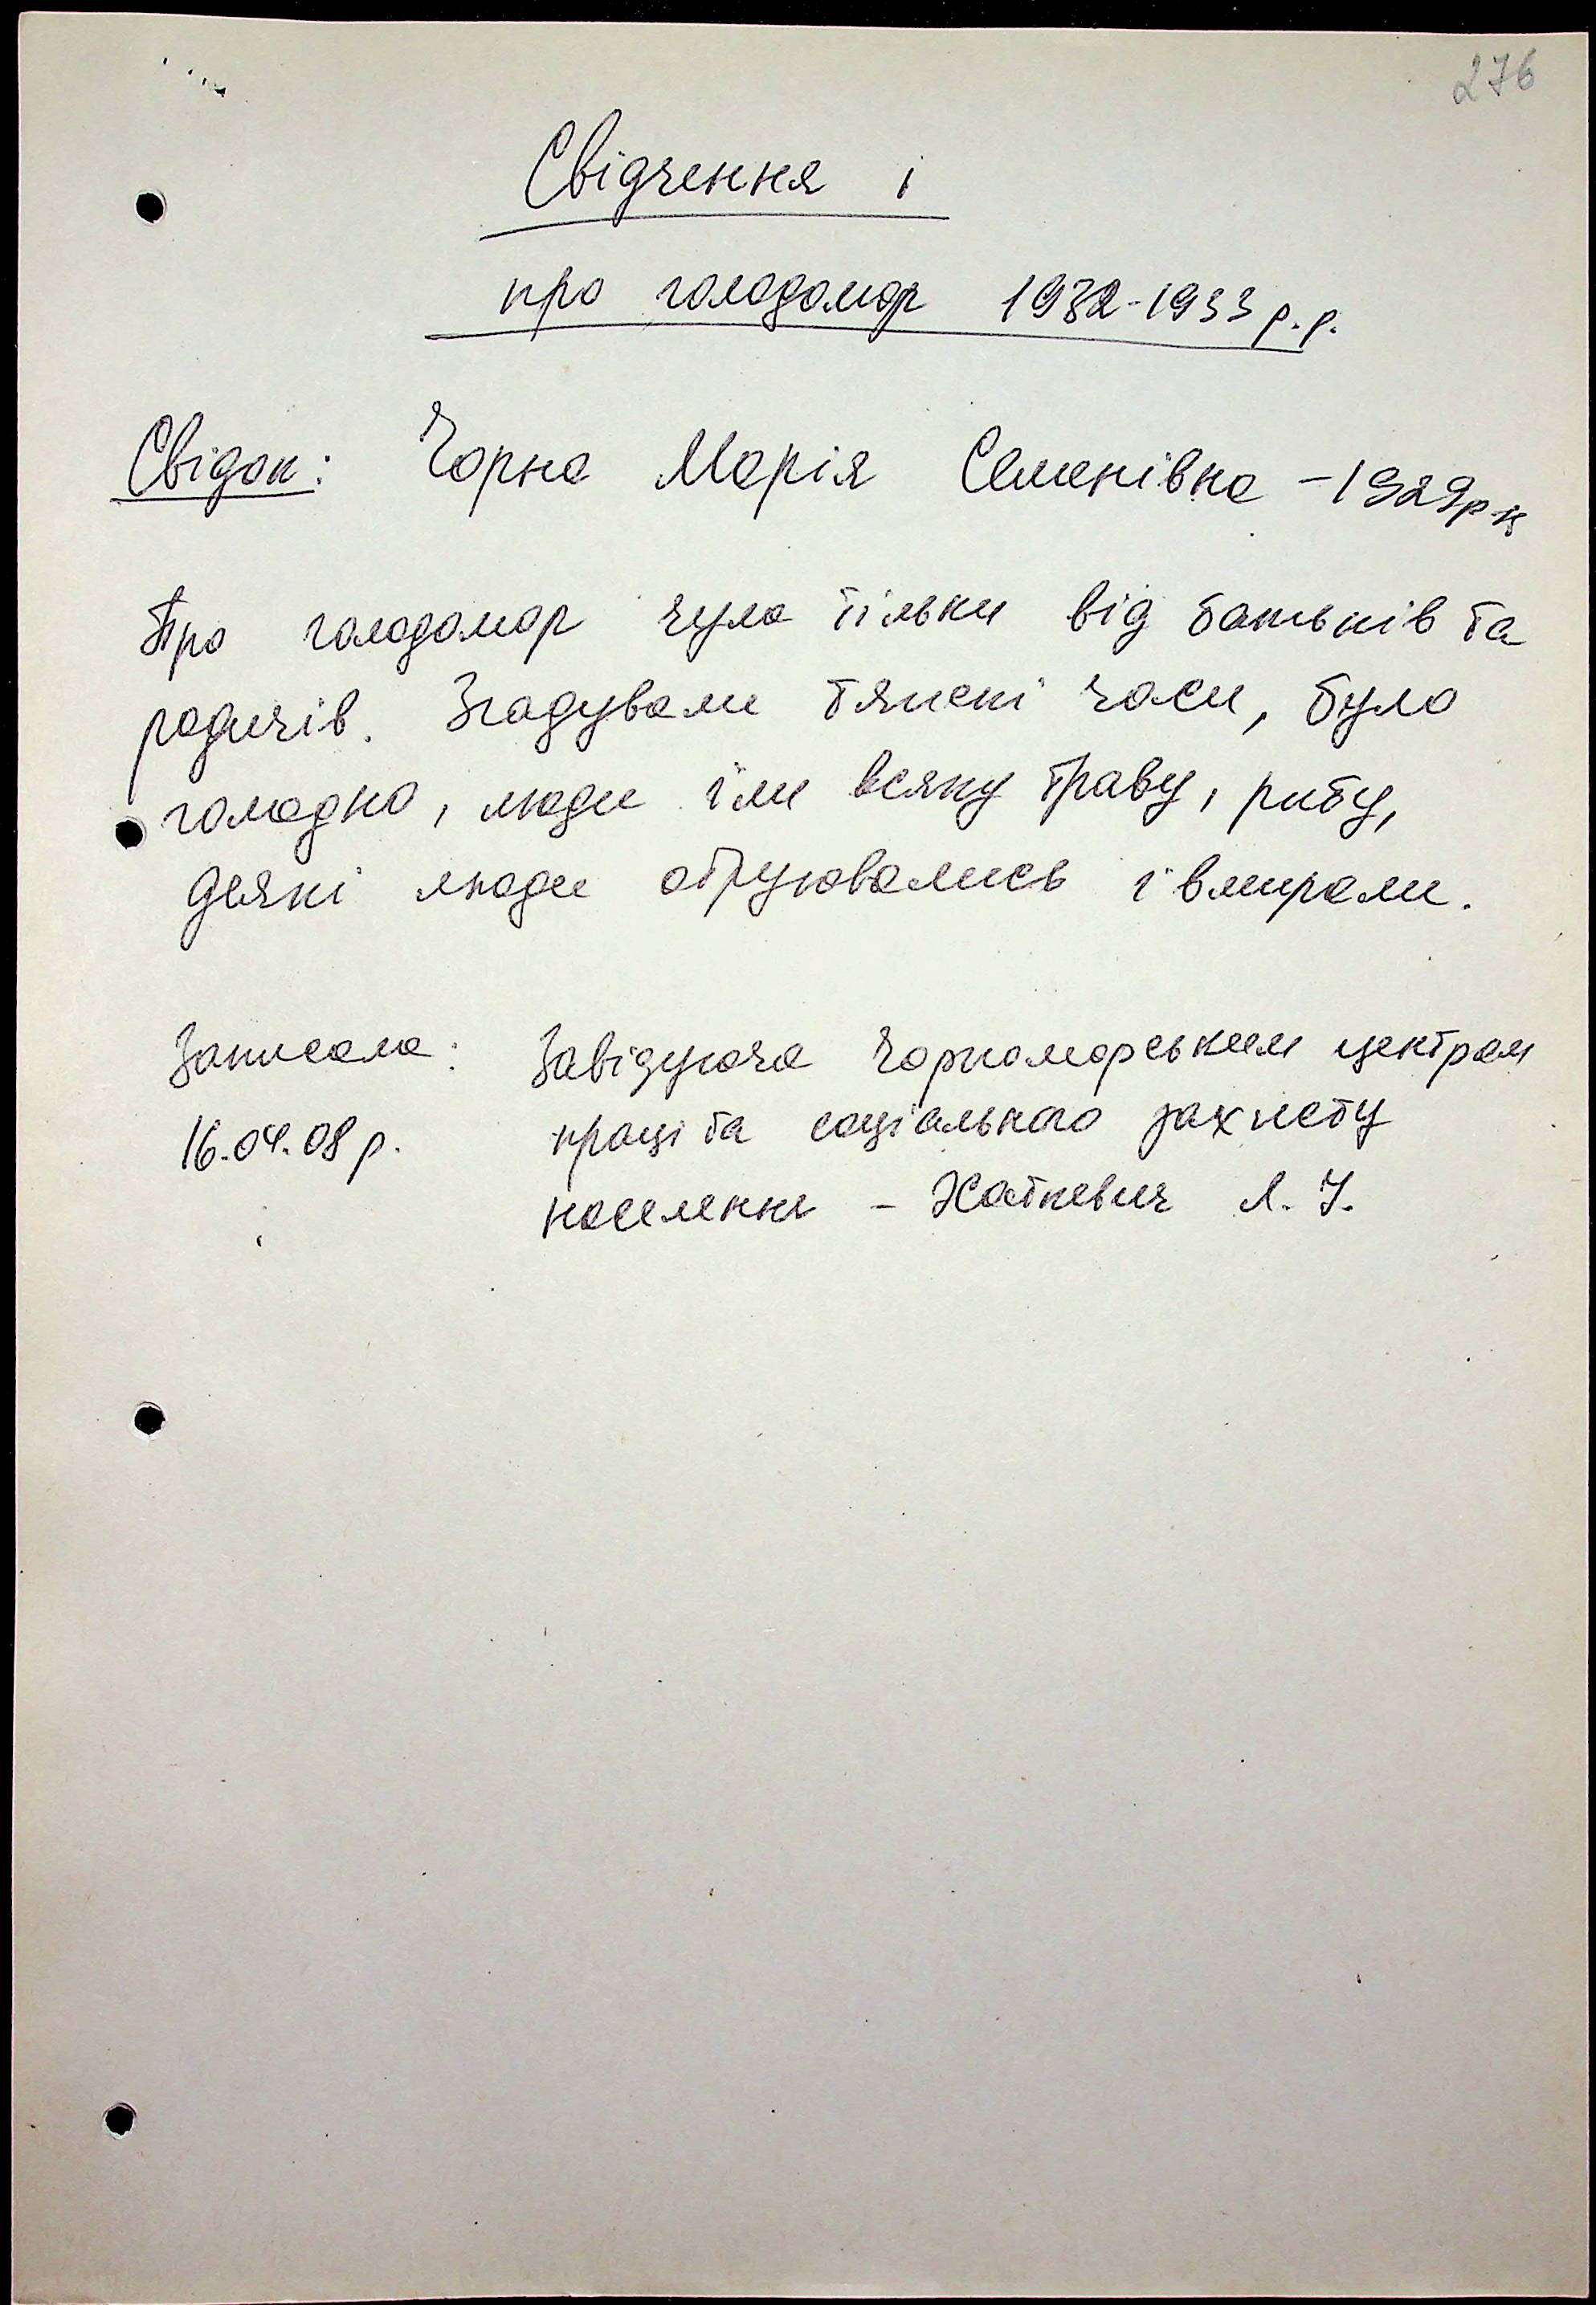 276
Свідчення і
про голодомор 1932-1933 р.р.
Свідок: Чорна Марія Семенівна - 1929 р н
Про голодомор чула тільки від батьків та
родичів. Згадували тяжкі часи, було
голодно, люди їли всяку траву, рибу,
деякі люди отруювались і вмирали.
Записала: Завідуюча Чорноморським центром
16.04.08 р. праці та соціального захисту
населення - Хаткевич Л. І.